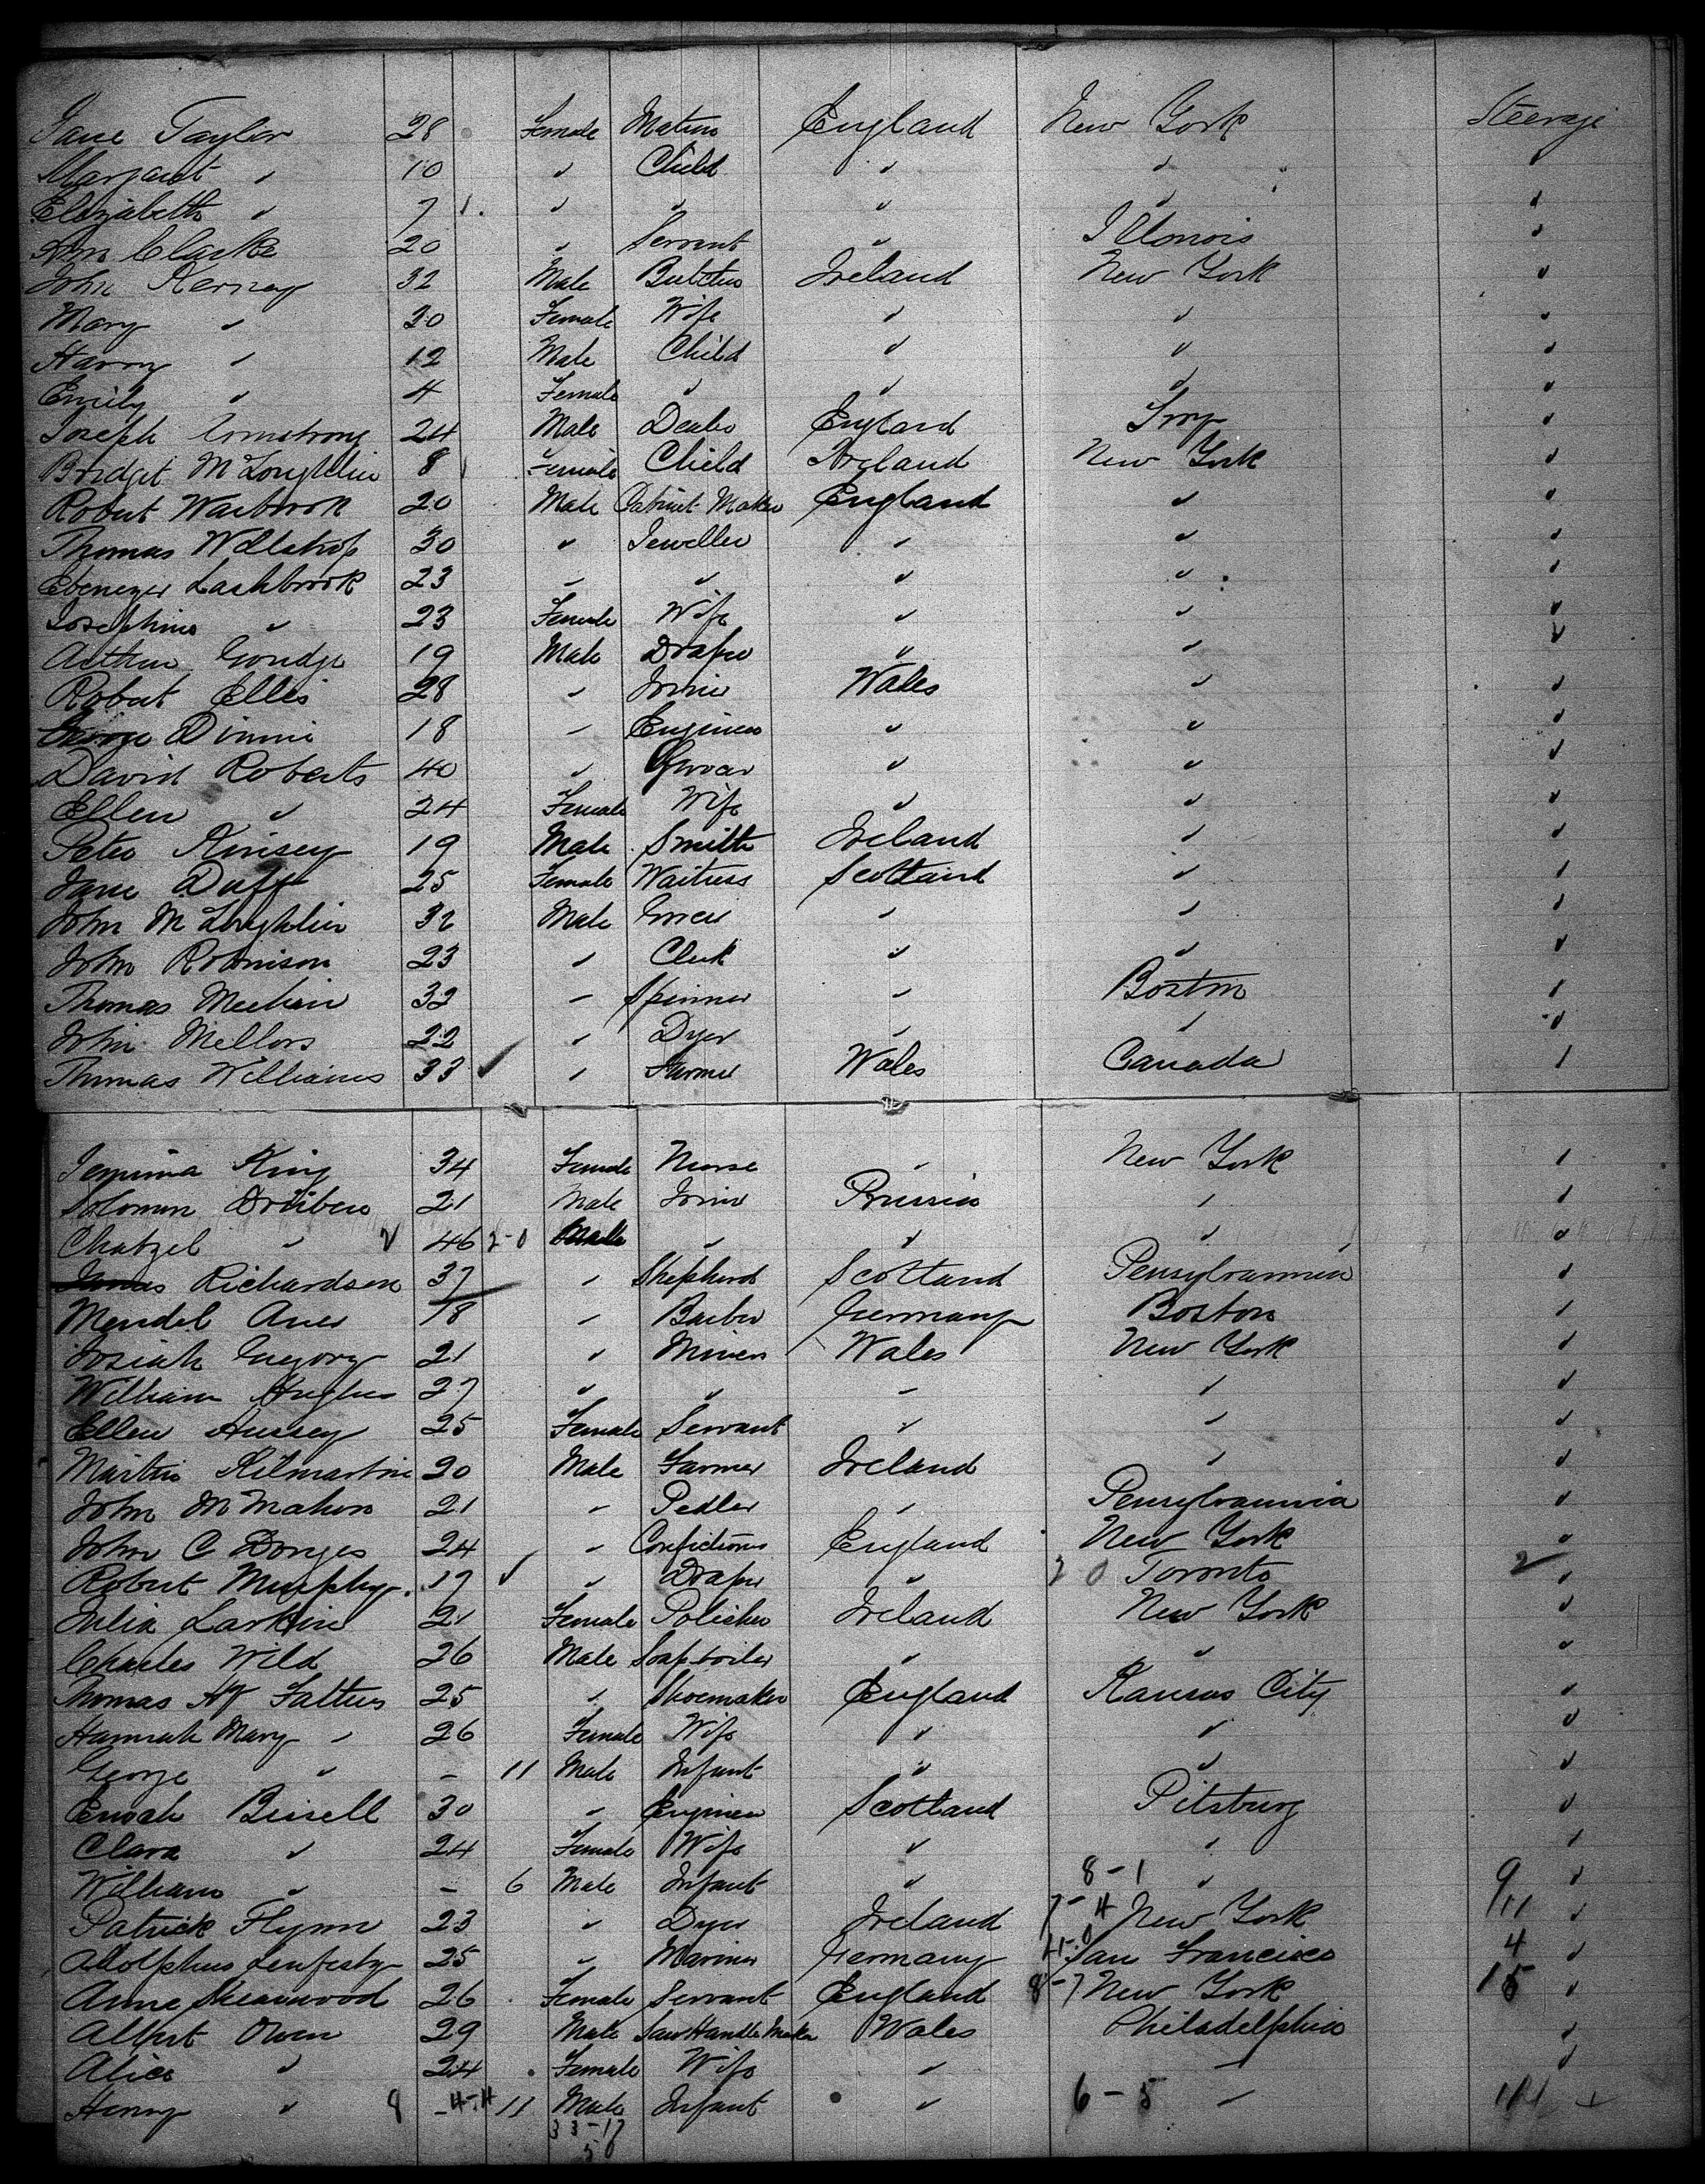 Jane Taylor 28 Female Matron England New York Steerage
Margaret " 10 " Child " " "
Elizabeth " 7 " " " " "
Ann Clarke 20 " Servant " Illonois "
John Kerney 32 Male Butcher Ireland New York "
Mary " 30 Female Wife " " "
Harry " 12 Male Child " " "
Emily " 4 Female " " " "
Joseph Armstrong 24 Male Dealer England Troy "
Bridget McLoughlin 8 Female Child Ireland New York "
Robert Warbrook 20 Male Cabinet Maker England " "
Thomas 30 " Jeweller " " "
Ebenezer Lashbrook 23 " " " " "
Josephine " 23 Female Wife " " "
Arthur Goudge 19 Male Draper " " "
Robert Ellis 28 " Joiner Wales " "
George Dinnie 18 " Engineer " " "
David Roberts 40 " Grocer " " "
Ellen " 24 Female Wife " " "
Peter Kinsey 19 Male Smith Ireland " "
Jane Duff 25 Female Waitress Scotland " "
John McLoughlin 32 Male Grocer " " "
John Robinson 23 " Clerk " " "
Thomas Meehan 32 " Spinner " Boston "
John Mellors 22 " Dyer " " "
Thomas Williams 33 " Farmer Wales Canada "
Jemima King 34 Female Nurse " New York "
Solomon 21 Male Joiner Prussia " "
Chatzel " 46 2-0 Male " " " "
James Richardson 37 " Shepherd Scotland Pensylvannia "
Mendel Auer 18 " Barber Germany Boston "
Josiah Gregory 21 " Miner Wales New York "
William Hughes 27 " " " " "
Ellen Hussey 25 Female Servant " " "
Martin Kilmartin 20 Male Farmer Ireland " "
John McMahon 21 " Pedler " Pensylvannia "
John C Donges 24 " Confectioner England New York "
Robert Murphy 17 " Draper " 2 0 Toronto 2 "
Julia Larkin 21 Female Polisher Ireland New York "
Charles Wild 26 Male Soapboiler " " "
Thomas 25 " Shoemaker England Kansas City "
Hannah Mary " 26 Female Wife " " "
George " - 11 Male Infant " " "
Enoch Bissell 30 " Engineer Scotland Pitsburg "
Clara " 24 Female Wife " " "
William " - 6 Male Infant " 8-1 " 9 "
Patrick Flynn 23 " Dyer Ireland 7-4 New York 11 "
Adolphus Lenfesty 25 " Mariner Germany San Francisco 4 "
Anne Shearwood 26 Female Servant England 8-7 New York 15 "
Albert Owen 29 Male Saw Handle Maker Wales Philadelphia "
Alice " 24 Female Wife " " "
Henry " 8 - 4-4 11 Male Infant " 6-5 "
33-17
50